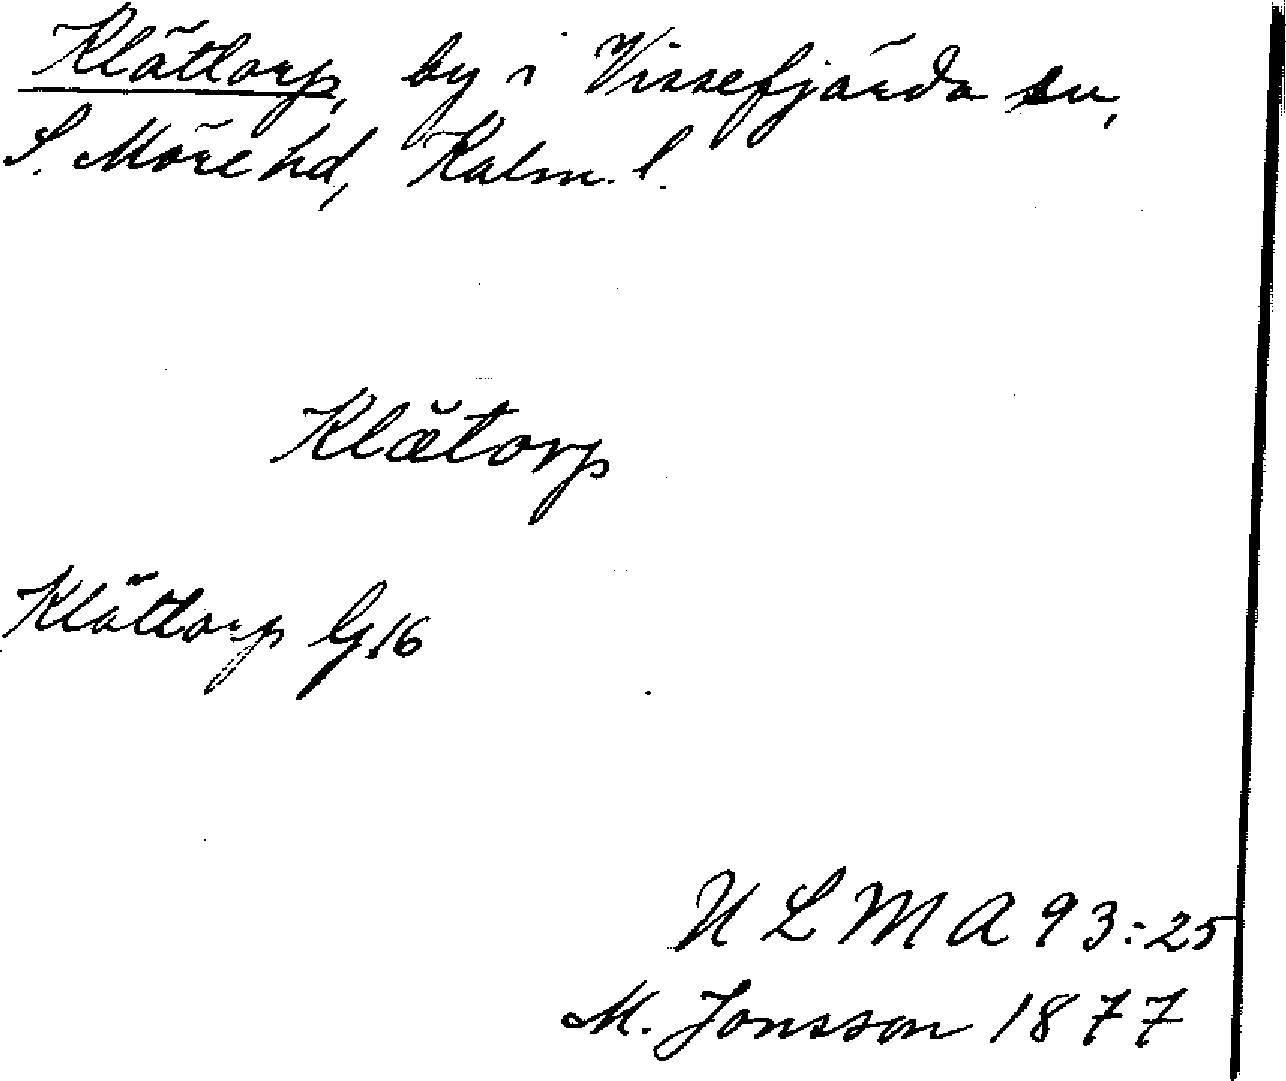 Klättorp, by i Vissefjärda sn,
S. Möre hd, Kalm. l.
Klætorp
Klättorp G.16
ULMA 93:25
M. Jonsson 1877